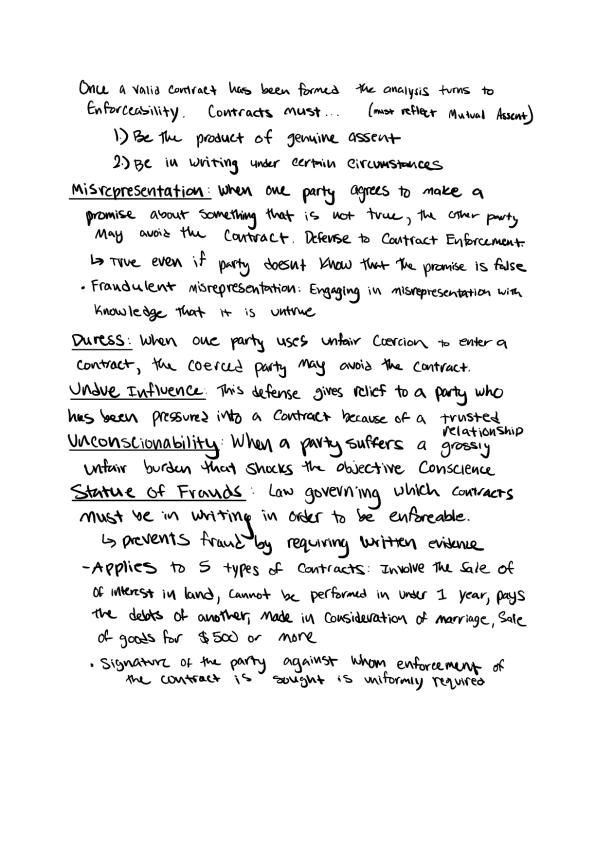 Once a valid contract has been formed the analysis turns to
Enforceability. Contracts must... (must reflect Mutual Assent)
1.) Be the product of genuine assent
2.) Be in writing under certain circumstances
Misrepresentation: When one party agrees to make a
promise about something that is not true, the other party
may avoid the contract. Defense to Contract Enforcement.
↳ True even if party doesnt know that the promise is false
• Fraudulent misrepresentation: Engaging in misrepresentation with
knowledge that it is untrue
Duress: When one party uses unfair coercion to enter a
contract, the coerced party may avoid the contract.
Undue Influence: This defense gives relief to a party who
has been pressured into a contract because of a trusted
relationship
Unconscionability: When a party suffers a grossly
unfair burden that shocks the objective conscience
Statue of Frauds: Law governing which contracts
must be in writing in order to be enforeable.
↳ prevents fraud by requiring written evidence
- Applies to 5 types of contracts: Involve the sale of
of interest in land, cannot be performed in under 1 year, pays
the debts of another, made in consideration of marriage, sale
of goods for $500 or more
• Signature of the party against whom enforcement of
the contract is sought is uniformly required